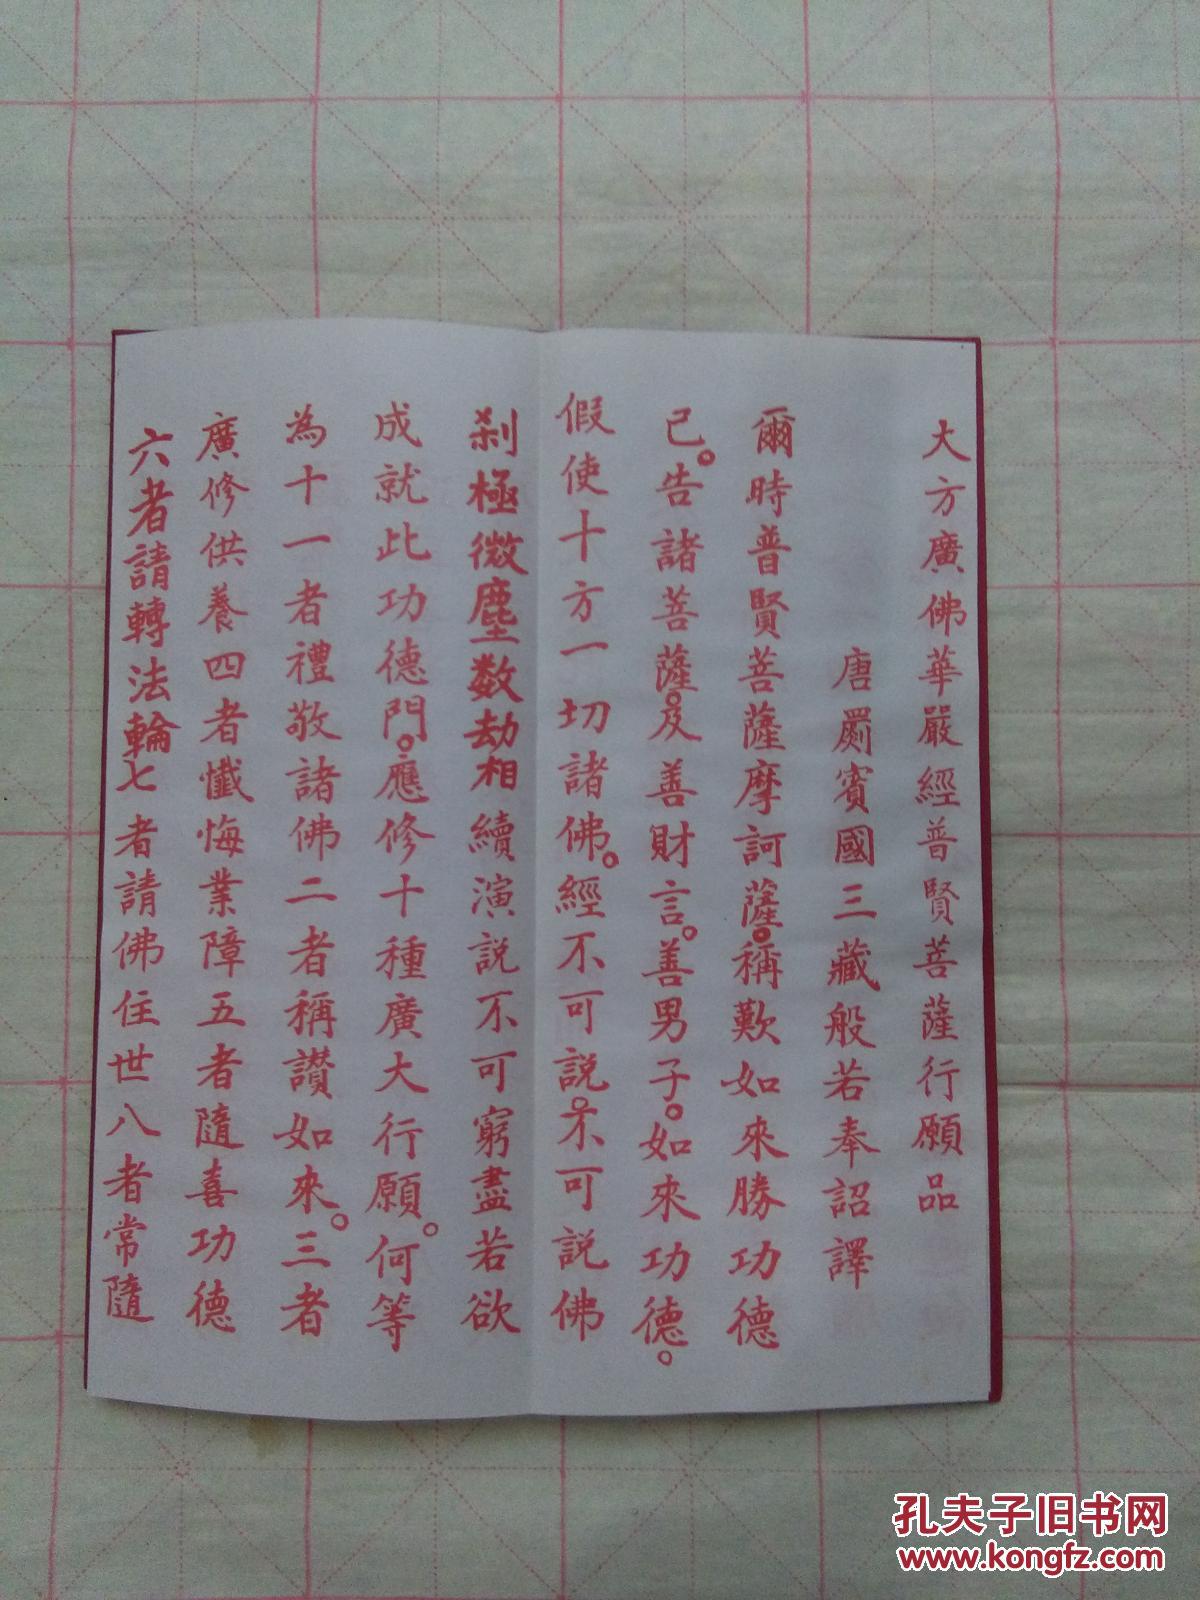 大方廣佛華嚴經普賢菩薩行願品
唐罽賓國三藏般若奉詔譯
爾時普賢菩薩摩訶薩。稱歎如來勝功德
已。告諸菩薩。及善財言。善男子。如來功德。
假使十方一切諸佛。經不可說。不可說佛
剎極微塵數劫相續演說不可窮盡若欲
成就此功德門。應修十種廣大行願。何等
為十一者禮敬諸佛二者稱讚如來。三者
廣修供養四者懺悔業障五者隨喜功德
六者請轉法輪七者請佛住世八者常隨
孔夫子旧书网
www.kongfz.com